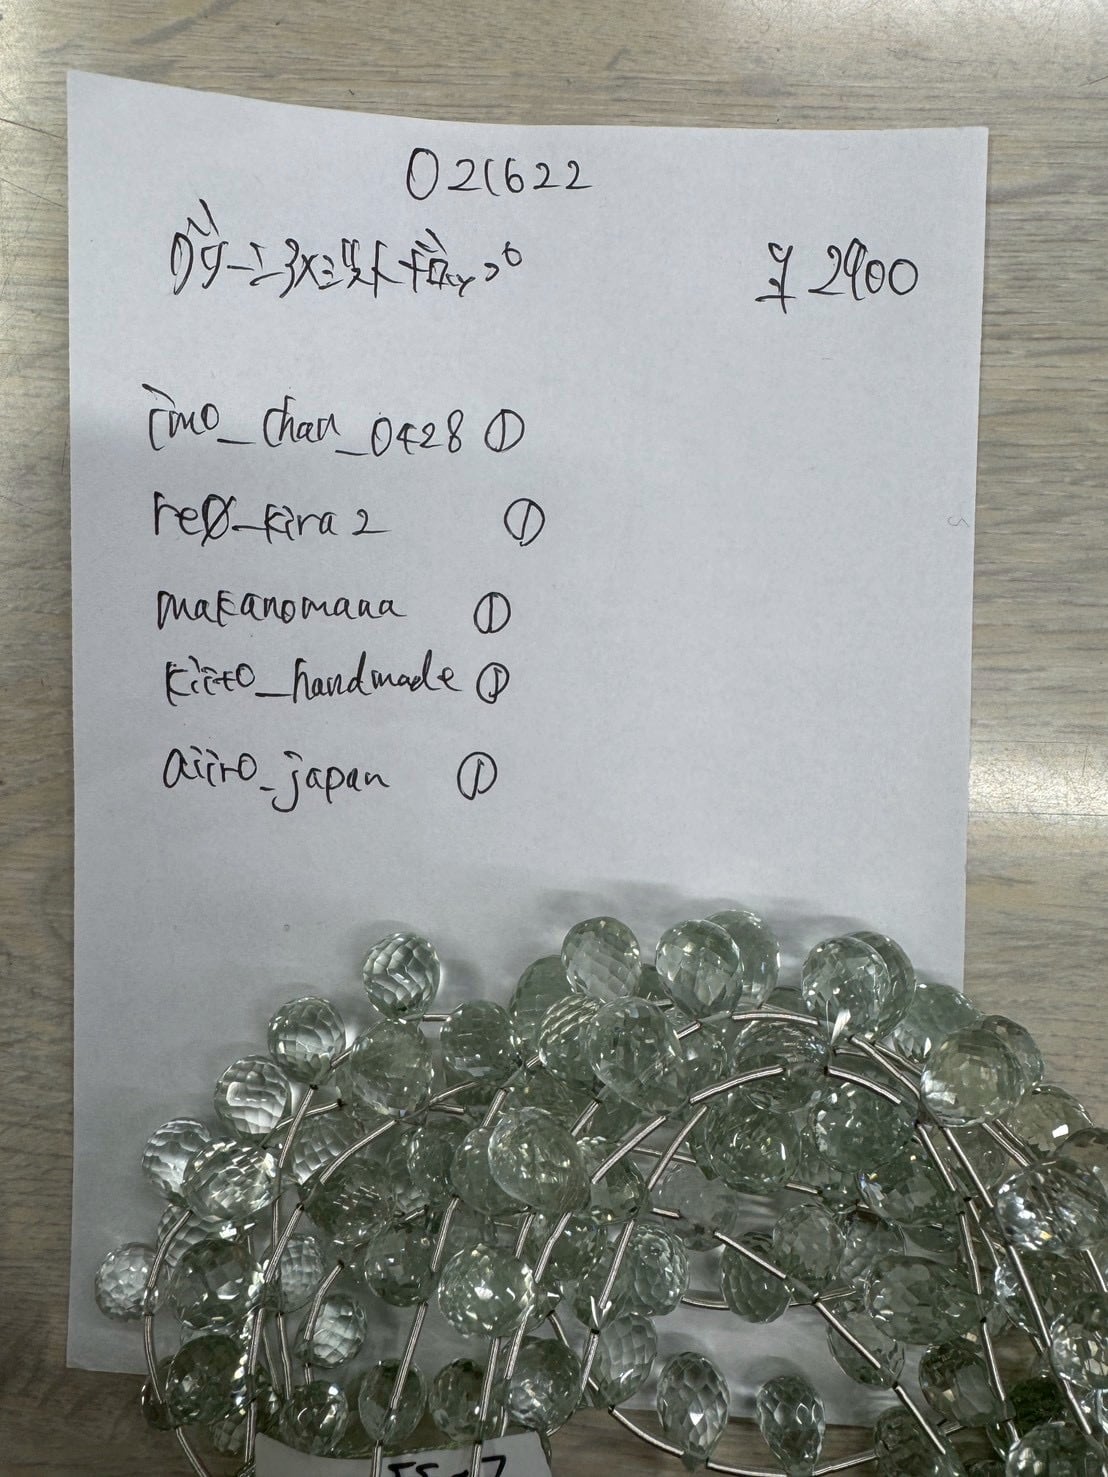 021622
¥ 2900
imo_chan_0428 ①
re0_kira2 ①
makanomana ①
kiito_handmade ①
aiiro_japan ①